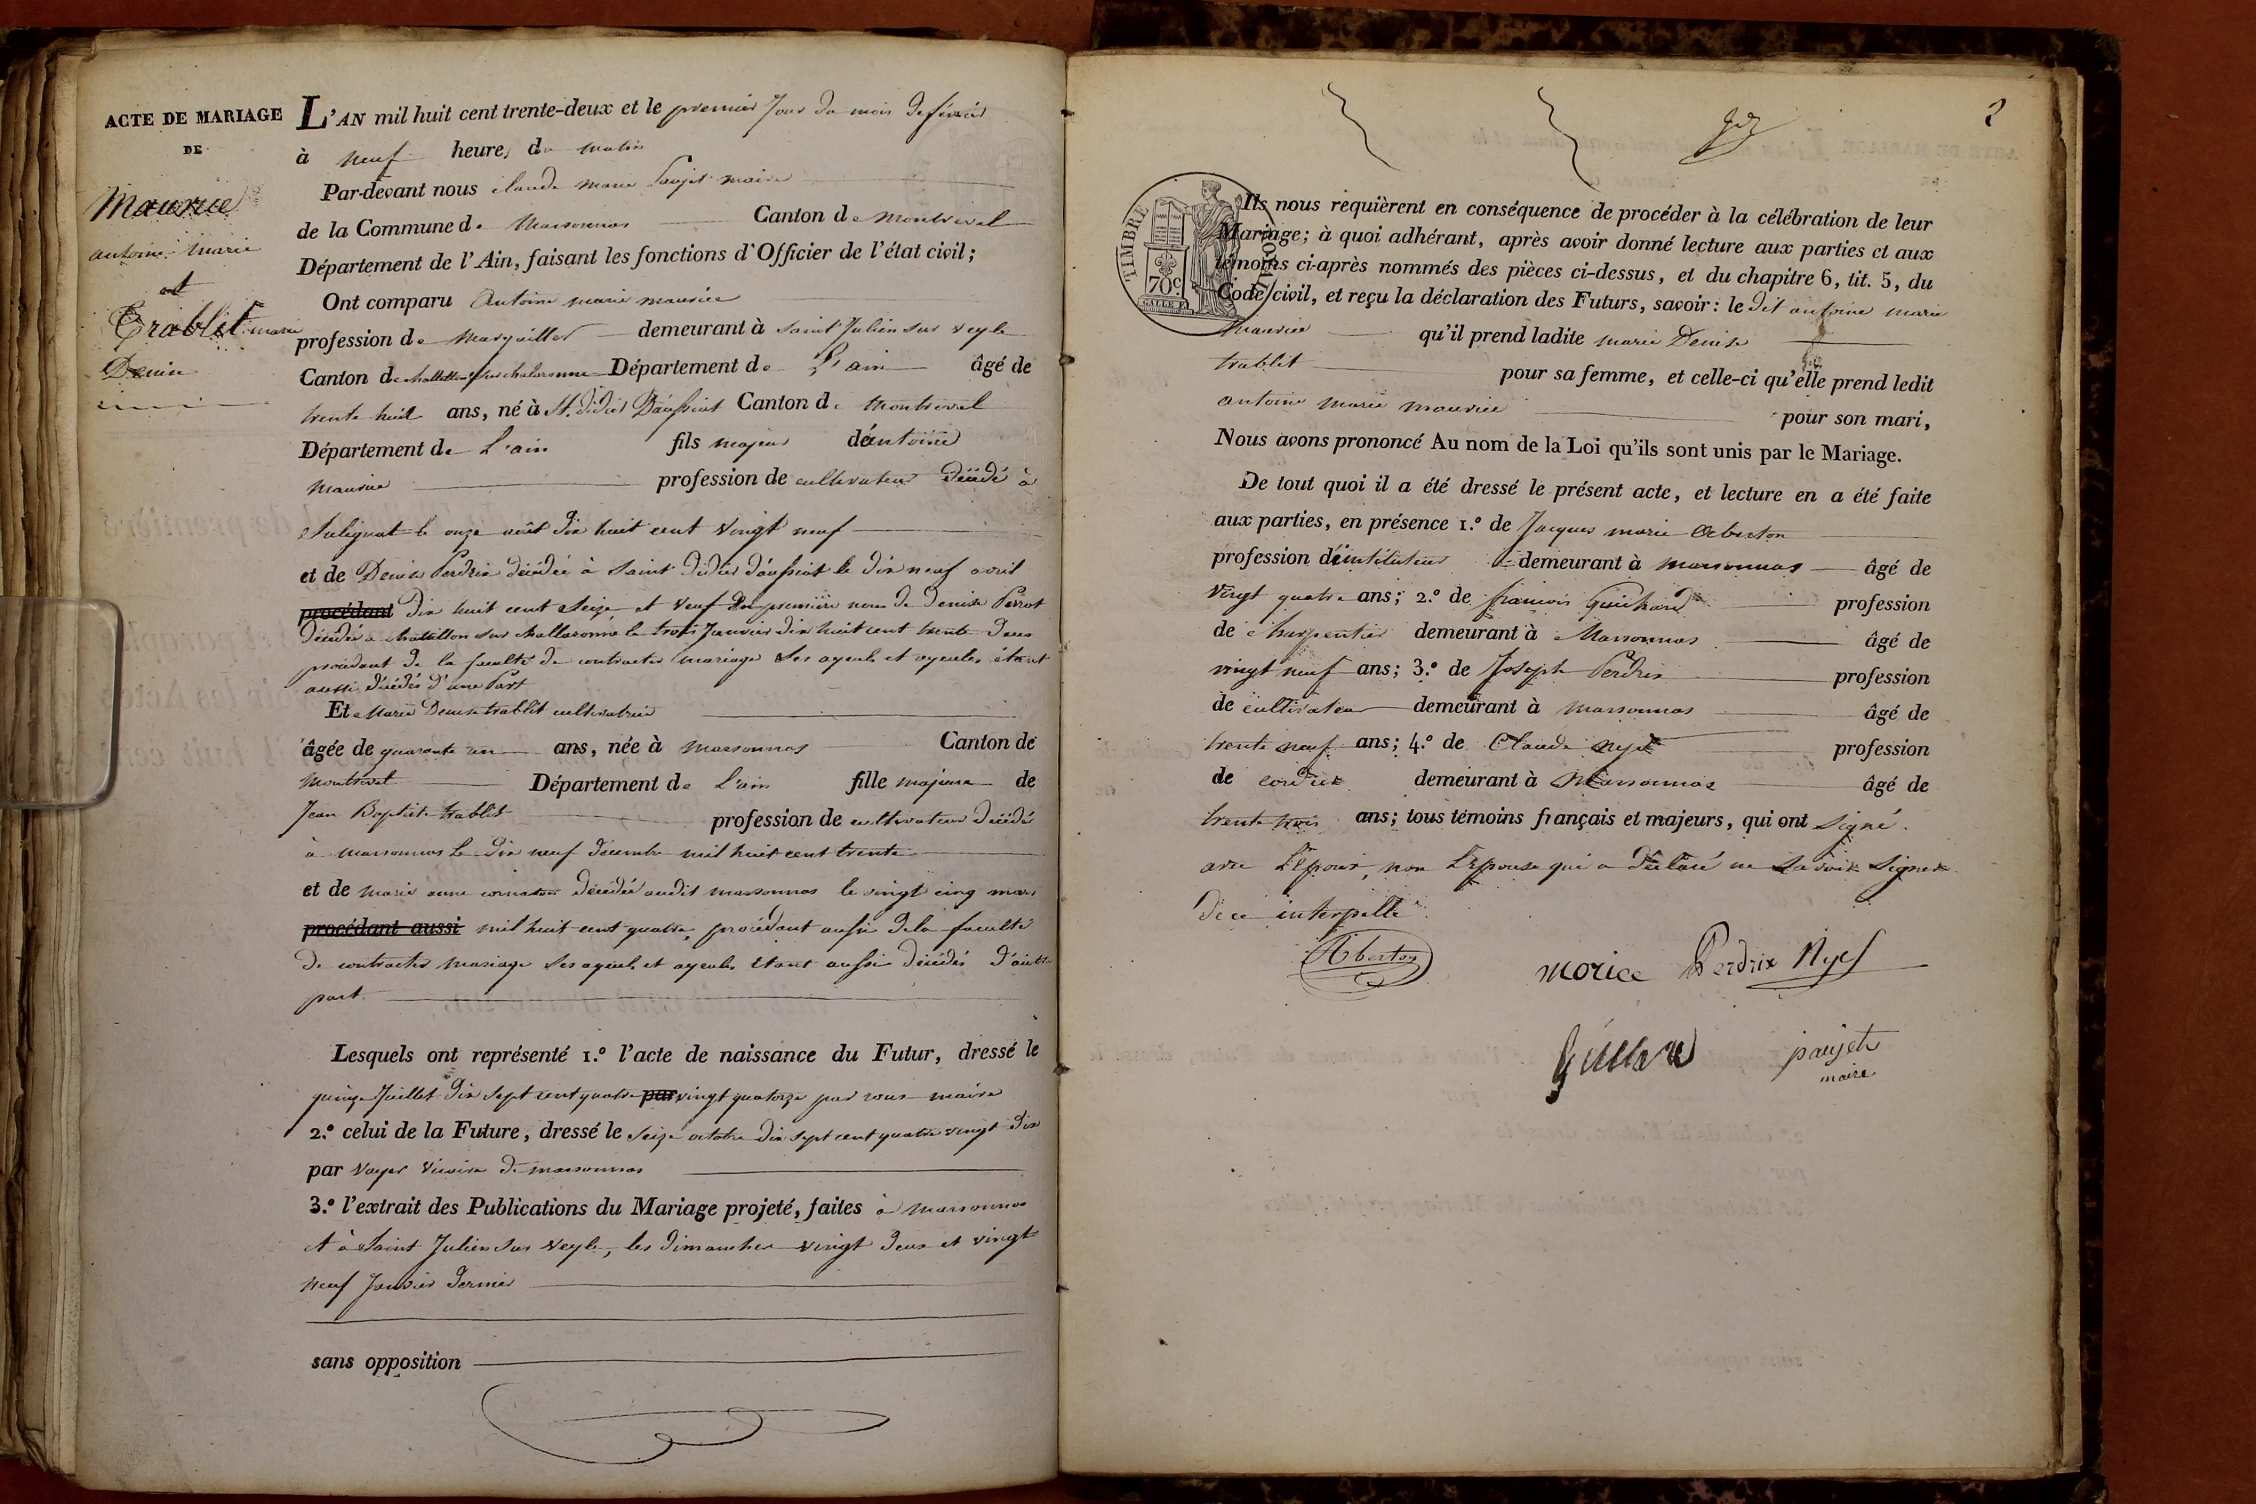 ACTE DE MARIAGE
DE
Maurice
antoine marie
et
Trablit marie
Denise
L'AN mil huit cent trente-deux et le premier Jour du mois de février
à neuf heures du matin
Par-devant nous claude marie Paujet maire
de la Commune de Marsonnas Canton de Montrevel
Département de l'Ain, faisant les fonctions d'Officier de l'état civil;
Ont comparu Antoine marie maurice
profession de Marguillier demeurant à saint Julien sur veyle
Canton de chatillon sur chalaronne Département de L'ain âgé de
trente huit ans, né à St. didier D'aussiat Canton de Montrevel
Département de L'ain fils majeur d'antoine
Maurice profession de cultivateur Décédé à
Sulignat le onze août dix huit cent vingt neuf
et de Denise Perdrix décédée à Saint Didier d'aussiat le dix neuf avril
procédant dix huit cent seize et veuf en première noce de Denise Perrot
Décédée à chatillon sur challaronne le trois Janvier dix huit cent trente deux
procédant de la faculté de contracter mariage ses ayeuls et ayeules étant
aussi décédés d'une Part
Et Marie Denise trablit cultivatrice
âgée de quarante un ans, née à Marsonnas Canton de
Montrevel Département de L'ain fille majeure de
Jean Baptiste trablit profession de cultivateur Décédé
à marsonnas le dix neuf décembre mil huit cent trente
et de Marie anne cornaton Décédée audit marsonnas le vingt cinq mars
procédant aussi mil huit cent quatre, procédant aussi de la faculté
de contracter mariage ses ayeuls et ayeules étant aussi décédés d'autre
part
Lesquels ont représenté 1.º l'acte de naissance du Futur, dressé le
quinze Juillet dix sept cent quatre par vingt quatorze par nous maire
2.º celui de la Future, dressé le seize octobre dix sept cent quatre vingt dix
par Vayer Vicaire de marsonnas
3.º l'extrait des Publications du Mariage projeté, faites à marsonnas
et à Saint Julien sur Veyle, les dimanches vingt deux et vingt
neuf Janvier dernier
sans opposition
2
TIMBRE ROYAL
70c
Ils nous requièrent en conséquence de procéder à la célébration de leur
Mariage; à quoi adhérant, après avoir donné lecture aux parties et aux
témoins ci-après nommés des pièces ci-dessus, et du chapitre 6, tit. 5, du
Code civil, et reçu la déclaration des Futurs, savoir: le dit antoine marie
Maurice qu'il prend ladite marie Denise
trablit pour sa femme, et celle-ci qu'elle prend ledit
antoine marie maurice pour son mari,
Nous avons prononcé Au nom de la Loi qu'ils sont unis par le Mariage.
De tout quoi il a été dressé le présent acte, et lecture en a été faite
aux parties, en présence 1.º de Jacques marie Orberton
profession d'instituteur demeurant à marsonnas âgé de
vingt quatre ans; 2.º de francois Guichard profession
de charpentier demeurant à Marsonnas âgé de
vingt neuf ans; 3.º de Joseph Perdrix profession
de cultivateur demeurant à marsonnas âgé de
trente neuf ans; 4.º de Claude nyd profession
de demeurant à Marsonnas âgé de
trente trois ans; tous témoins français et majeurs, qui ont signé.
avec L'Epoux, non L'Epouse qui a déclaré ne savoir signer
de ce interpellé
morice Perdrix Nyd
Guichard paujet
maire